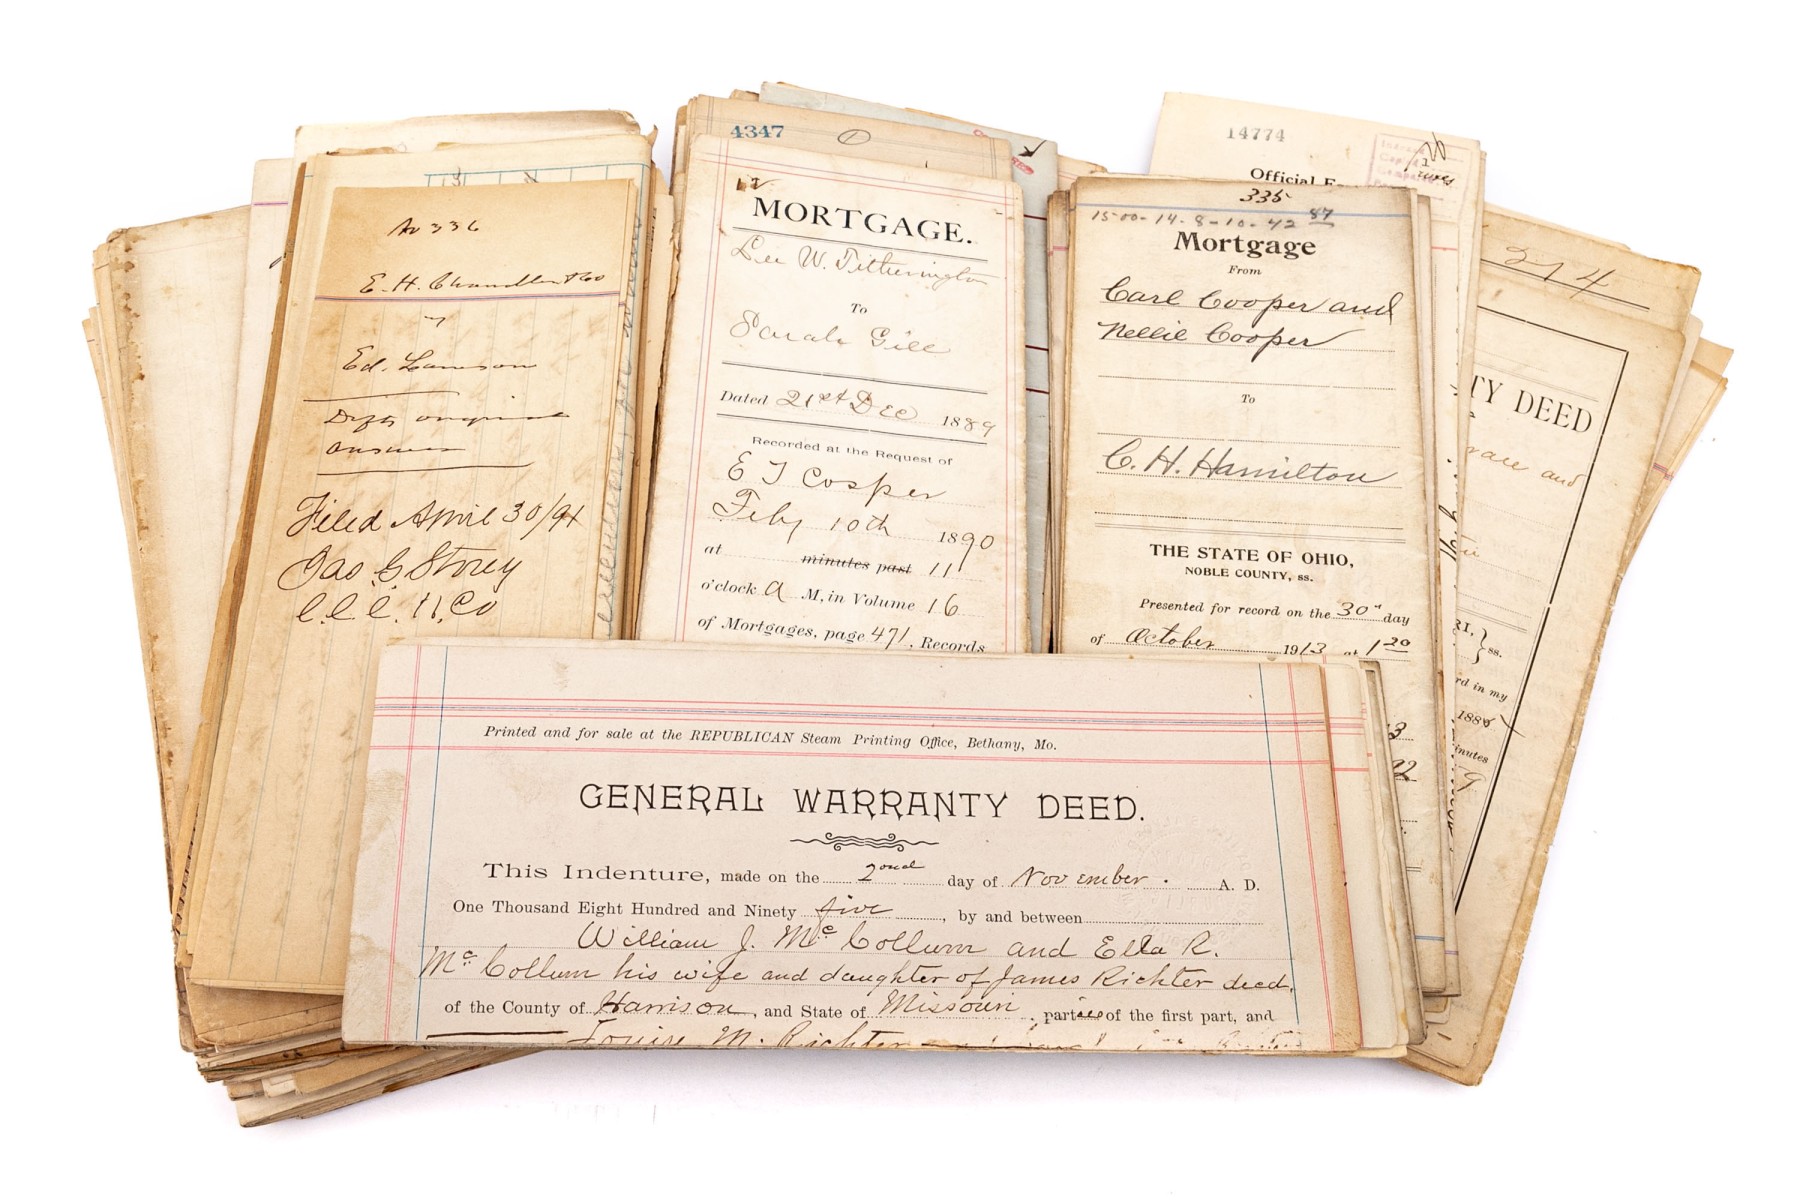 No 336
E. H. Chandler & Co
v
Ed. Lamson
Defts original
answer
Filed April 30/91
Jas G Storey
C.C.C. H. Co
4347
1
MORTGAGE.
Lee W. Titherington
To
Sarah Gill
Dated 21st Dec 1889
Recorded at the Request of
E T Cosper
Feby 10th 1890
at minutes past 11
o'clock A M, in Volume 16
of Mortgages, page 471, Records
14774
Official
335
15-00-14-8-10-42 87
Mortgage
From
Carl Cooper and
Nellie Cooper
To
C. H. Hamilton
THE STATE OF OHIO,
NOBLE COUNTY, ss.
Presented for record on the 30" day
of October 1913 at 1 20
374
TY DEED
and
RI. } ss.
rd in my
188
inutes
9
3
92
Printed and for sale at the REPUBLICAN Steam Printing Office, Bethany, Mo.
GENERAL WARRANTY DEED.
This Indenture, made on the 2ond day of November. A. D.
One Thousand Eight Hundred and Ninety five, by and between
William J. McCollum and Ella R.
McCollum his wife and daughter of James Richter decd,
of the County of Harrison, and State of Missouri, parties of the first part, and
Louise M. Richter